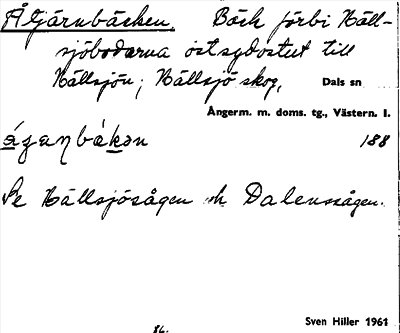 Åtjärnbäcken. Bäck förbi Häll-
sjöbodarna ostsydostut till
Hällsjön; Hällsjö skog, Dals sn
Ångerm. m. doms. tg., Västern. l.
188
Se Hällsjösågen och Dalenssågen.
Sven Hiller 1961